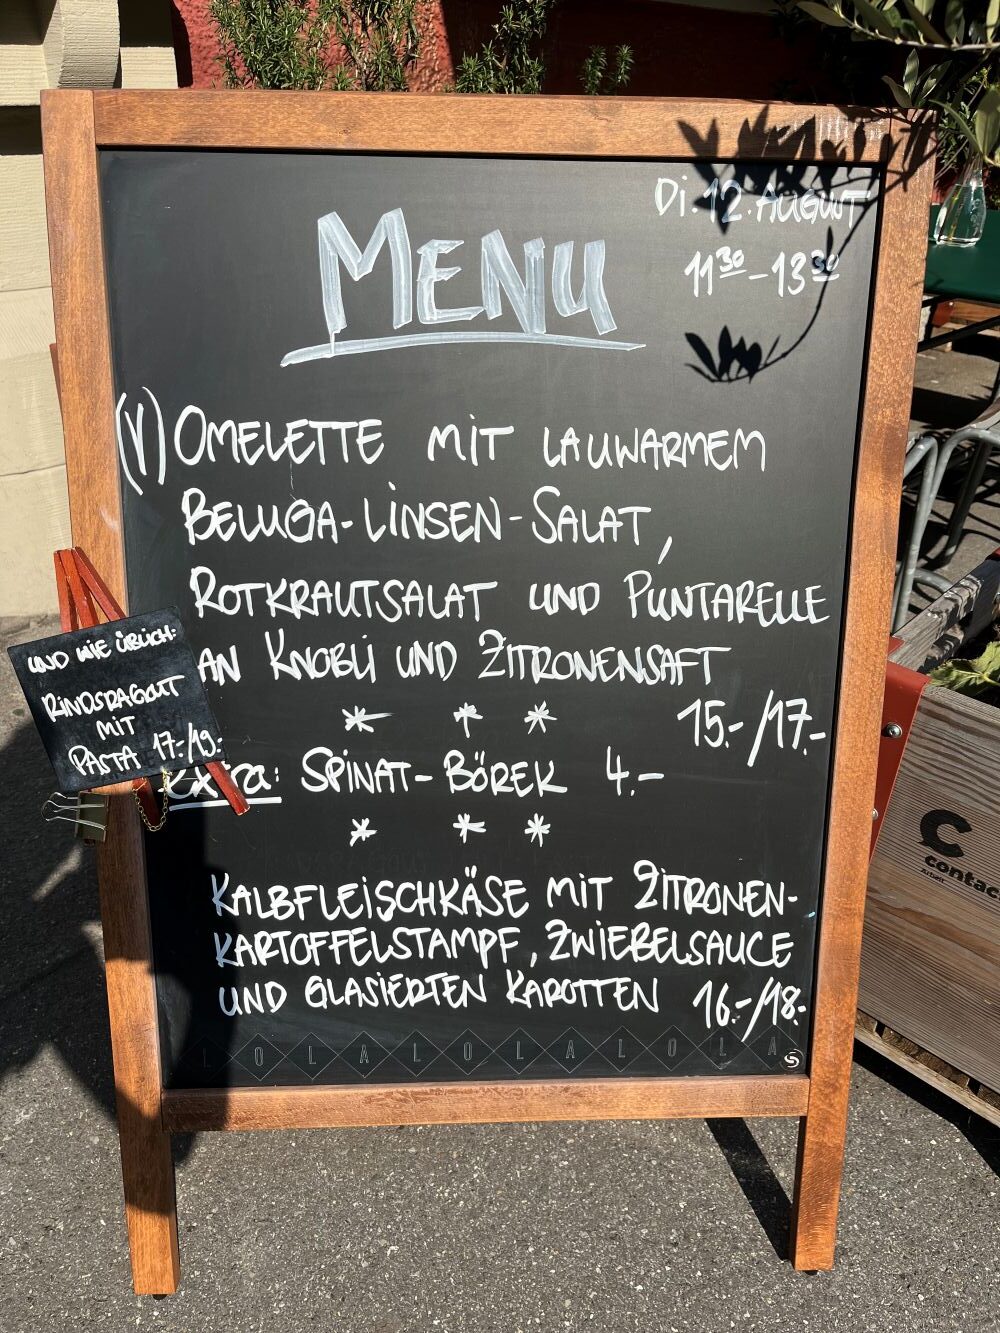 Di. 12. AUGUST
MENU
11³⁰-13³⁰
(V) OMELETTE MiT LAUWARMEM
BELUGA-LiNSEN-SALAT,
ROTKRAUTSALAT UND PUNTARELLE
AN KNOBLi UND ZiTRONENSAFT
* * * 15.-/17.-
Extra: SPiNAT-BÖREK 4.-
* * *
KALBFLEiSCHKÄSE MiT ZiTRONEN-
KARTOFFELSTAMPF, ZWiEBELSAUCE
UND GLASiERTEN KAROTTEN 16.-/18.-
LOLALOLALOLA
UND WiE ÜBLiCH:
RiNDSRAGOUT
MiT
PASTA 17.-/19.-
contac
Arbeit